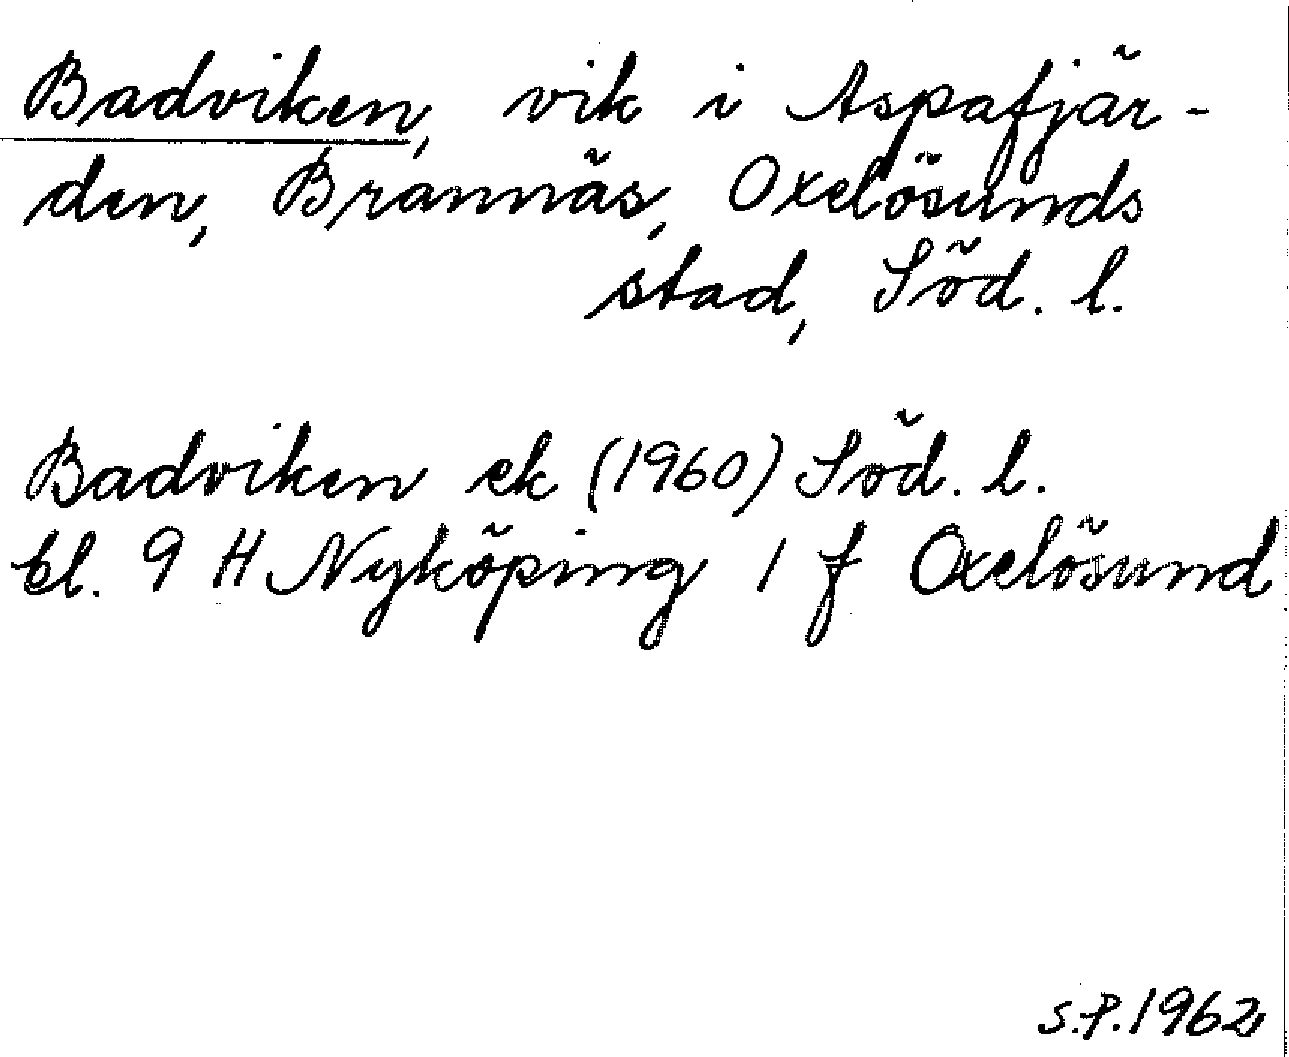 Badviken, vik i Aspafjär-
den, Brannäs, Oxelösunds
stad, Söd. l.
Badviken ek (1960) Söd. l.
bl. 9 H Nyköping 1 f Oxelösund
S.P. 1962